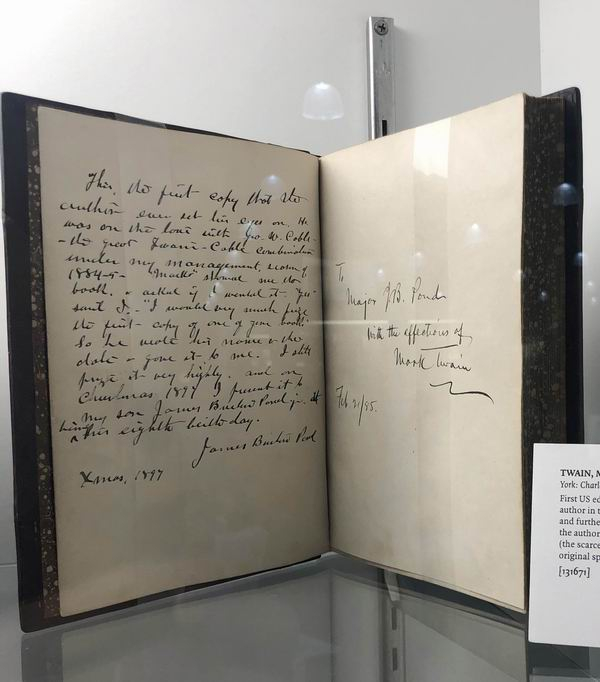 This, the first copy that the
author ever set his eyes on. He
was on the tour with Geo. W. Cable
- the great Twain-Cable combination
under my management, season of
1884-5- "Mark" showed me the
book, & asked if I wanted it. "Yes"
said I, - "I would very much prize
the first copy of one of your books."
So he wrote his name & the
date & gave it to me. I still
prize it very highly. and on
Christmas 1897 I present it to
my son James Burton Pond jr. at
his eighth birthday.
James Burton Pond
Xmas, 1897
To
Major J.B. Pond
with the affections of
Mark Twain
Feb. 21/85.
TWAIN, M
York: Charl
First US ed
author in t
and furthe
the author
(the scarce
original sp
[131671]